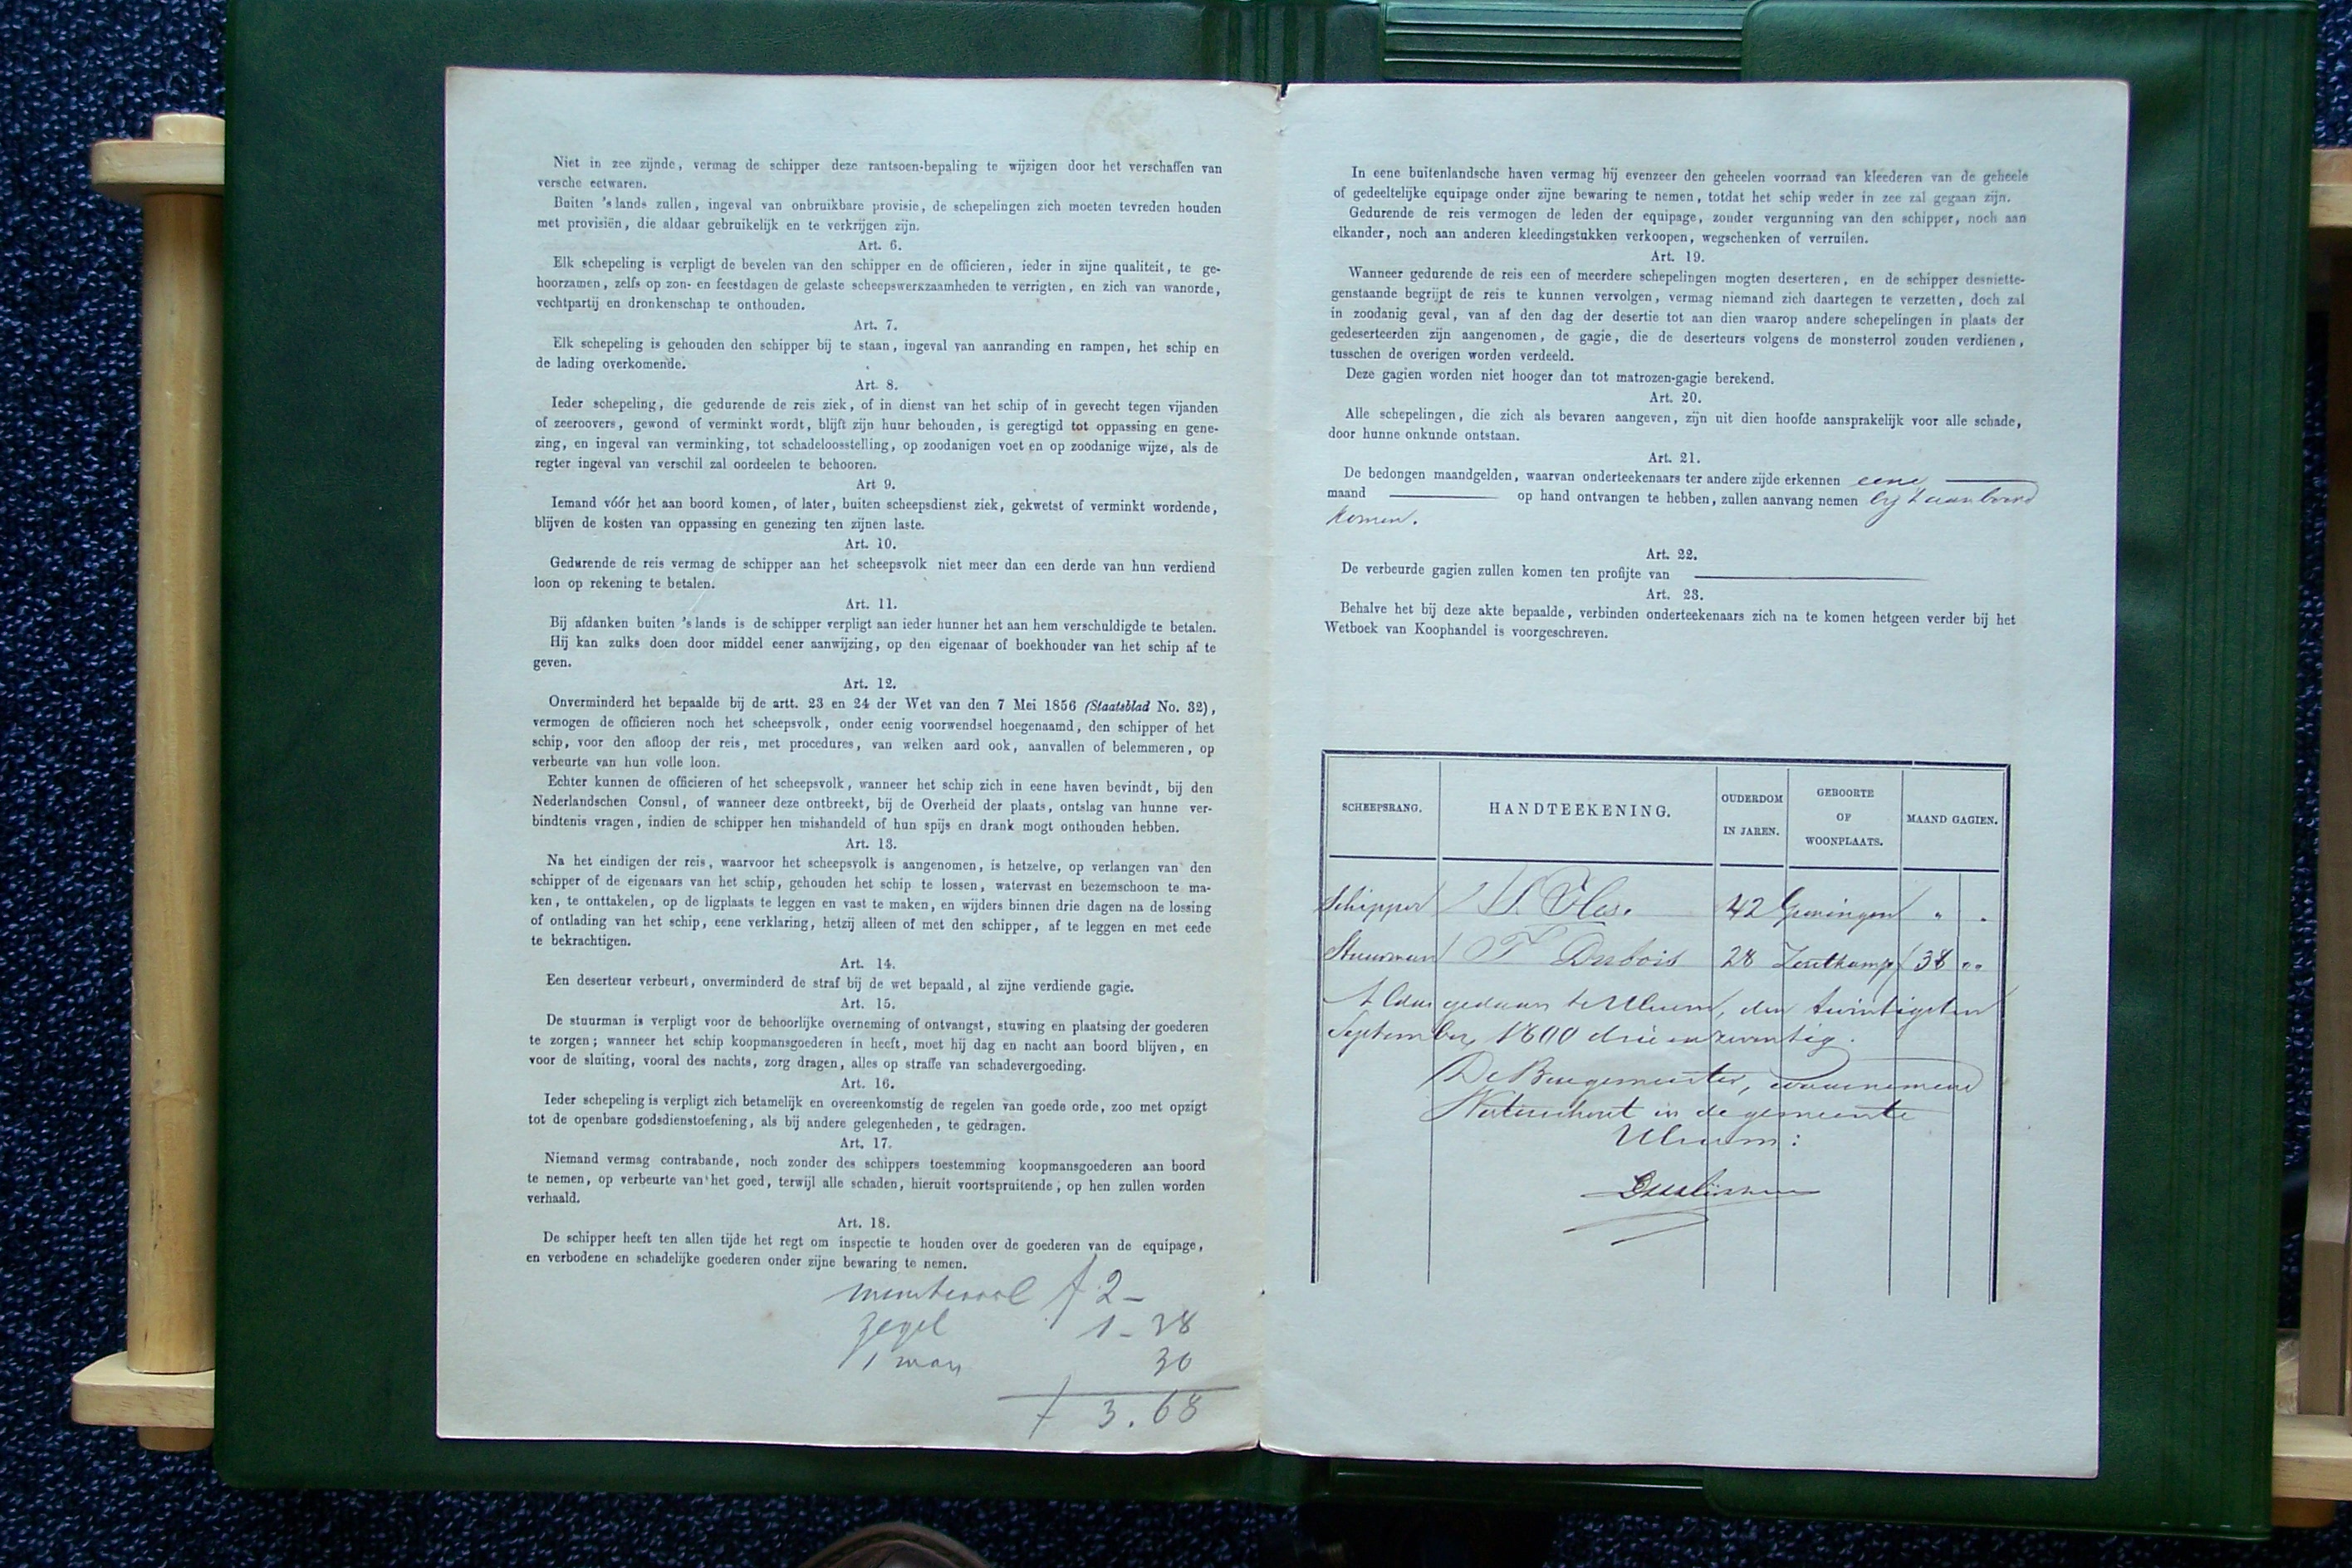 Niet in zee zijnde, vermag de schipper deze rantsoen-bepaling te wijzigen door het verschaffen van
versche eetwaren.
Buiten 's lands zullen, ingeval van onbruikbare provisie, de schepelingen zich moeten tevreden houden
met provisiën, die aldaar gebruikelijk en te verkrijgen zijn.
Art. 6.
Elk schepeling is verpligt de bevelen van den schipper en de officieren, ieder in zijne qualiteit, te ge-
hoorzamen, zelfs op zon- en feestdagen de gelaste scheepswerkzaamheden te verrigten, en zich van wanorde,
vechtpartij en dronkenschap te onthouden.
Art. 7.
Elk schepeling is gehouden den schipper bij te staan, ingeval van aanranding en rampen, het schip en
de lading overkomende.
Art. 8.
Ieder schepeling, die gedurende de reis ziek, of in dienst van het schip of in gevecht tegen vijanden
of zeeroovers, gewond of verminkt wordt, blijft zijn huur behouden, is geregtigd tot oppassing en gene-
zing, en ingeval van verminking, tot schadeloosstelling, op zoodanigen voet en op zoodanige wijze, als de
regter ingeval van verschil zal oordeelen te behooren.
Art 9.
Iemand vóór het aan boord komen, of later, buiten scheepsdienst ziek, gekwetst of verminkt wordende,
blijven de kosten van oppassing en genezing ten zijnen laste.
Art. 10.
Gedurende de reis vermag de schipper aan het scheepsvolk niet meer dan een derde van hun verdiend
loon op rekening te betalen.
Art. 11.
Bij afdanken buiten 's lands is de schipper verpligt aan ieder hunner het aan hem verschuldigde te betalen.
Hij kan zulks doen door middel eener aanwijzing, op den eigenaar of boekhouder van het schip af te
geven.
Art. 12.
Onverminderd het bepaalde bij de artt. 23 en 24 der Wet van den 7 Mei 1856 (Staatsblad No. 32),
vermogen de officieren noch het scheepsvolk, onder eenig voorwendsel hoegenaamd, den schipper of het
schip, voor den afloop der reis, met procedures, van welken aard ook, aanvallen of belemmeren, op
verbeurte van hun volle loon.
Echter kunnen de officieren of het scheepsvolk, wanneer het schip zich in eene haven bevindt, bij den
Nederlandschen Consul, of wanneer deze ontbreekt, bij de Overheid der plaats, ontslag van hunne ver-
bindtenis vragen, indien de schipper hen mishandeld of hun spijs en drank mogt onthouden hebben.
Art. 13.
Na het eindigen der reis, waarvoor het scheepsvolk is aangenomen, is hetzelve, op verlangen van den
schipper of de eigenaars van het schip, gehouden het schip te lossen, watervast en bezemschoon te ma-
ken, te onttakelen, op de ligplaats te leggen en vast te maken, en wijders binnen drie dagen na de lossing
of ontlading van het schip, eene verklaring, hetzij alleen of met den schipper, af te leggen en met eede
te bekrachtigen.
Art. 14.
Een deserteur verbeurt, onverminderd de straf bij de wet bepaald, al zijne verdiende gagie.
Art. 15.
De stuurman is verpligt voor de behoorlijke overneming of ontvangst, stuwing en plaatsing der goederen
te zorgen; wanneer het schip koopmansgoederen in heeft, moet hij dag en nacht aan boord blijven, en
voor de sluiting, vooral des nachts, zorg dragen, alles op straffe van schadevergoeding.
Art. 16.
Ieder schepeling is verpligt zich betamelijk en overeenkomstig de regelen van goede orde, zoo met opzigt
tot de openbare godsdienstoefening, als bij andere gelegenheden, te gedragen.
Art. 17.
Niemand vermag contrabande, noch zonder des schippers toestemming koopmansgoederen aan boord
te nemen, op verbeurte van het goed, terwijl alle schaden, hieruit voortspruitende, op hen zullen worden
verhaald.
Art. 18.
De schipper heeft ten allen tijde het regt om inspectie te houden over de goederen van de equipage,
en verbodene en schadelijke goederen onder zijne bewaring te nemen.
monsterrol f 2 -
zegel 1 - 38
1 man 30
f 3.68
In eene buitenlandsche haven vermag hij evenzeer den geheelen voorraad van kleederen van de geheele
of gedeeltelijke equipage onder zijne bewaring te nemen, totdat het schip weder in zee zal gegaan zijn.
Gedurende de reis vermogen de leden der equipage, zonder vergunning van den schipper, noch aan
elkander, noch aan anderen kleedingstukken verkoopen, wegschenken of verruilen.
Art. 19.
Wanneer gedurende de reis een of meerdere schepelingen mogten deserteren, en de schipper desniette-
genstaande begrijpt de reis te kunnen vervolgen, vermag niemand zich daartegen te verzetten, doch zal
in zoodanig geval, van af den dag der desertie tot aan dien waarop andere schepelingen in plaats der
gedeserteerden zijn aangenomen, de gagie, die de deserteurs volgens de monsterrol zouden verdienen,
tusschen de overigen worden verdeeld.
Deze gagien worden niet hooger dan tot matrozen-gagie berekend.
Art. 20.
Alle schepelingen, die zich als bevaren aangeven, zijn uit dien hoofde aansprakelijk voor alle schade,
door hunne onkunde ontstaan.
Art. 21.
De bedongen maandgelden, waarvan onderteekenaars ter andere zijde erkennen eene
maand op hand ontvangen te hebben, zullen aanvang nemen bij 't aan boord
komen.
Art. 22.
De verbeurde gagien zullen komen ten profijte van
Art. 23.
Behalve het bij deze akte bepaalde, verbinden onderteekenaars zich na te komen hetgeen verder bij het
Wetboek van Koophandel is voorgeschreven.
SCHEEPSRANG. HANDTEEKENING. OUDERDOM IN JAREN. GEBOORTE OF WOONPLAATS. MAAND GAGIEN.
Schipper 42 Groningen " "
Stuurman F Dubois 28 Zoutkamp f 38 ""
Aldus gedaan te Ulrum, den twintigsten
September 1800 drie en zeventig.
De Burgemeester, waarnemend
Waterschout in de gemeente
Ulrum: